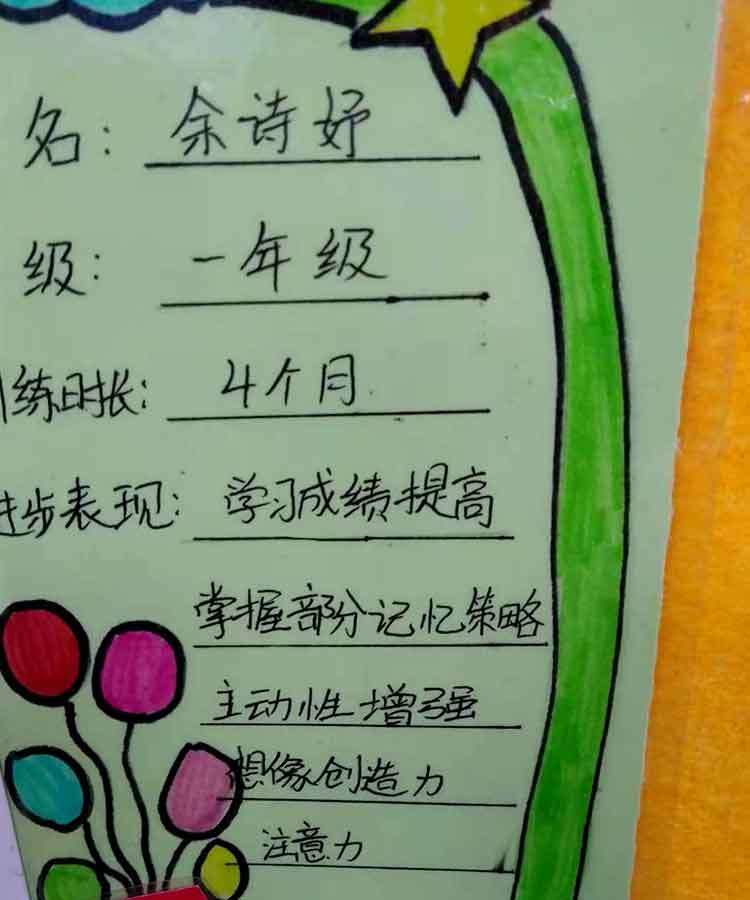 名：余诗妤
级：一年级
训练时长：4个月
进步表现：学习成绩提高
掌握部分记忆策略
主动性增强
想像创造力
注意力